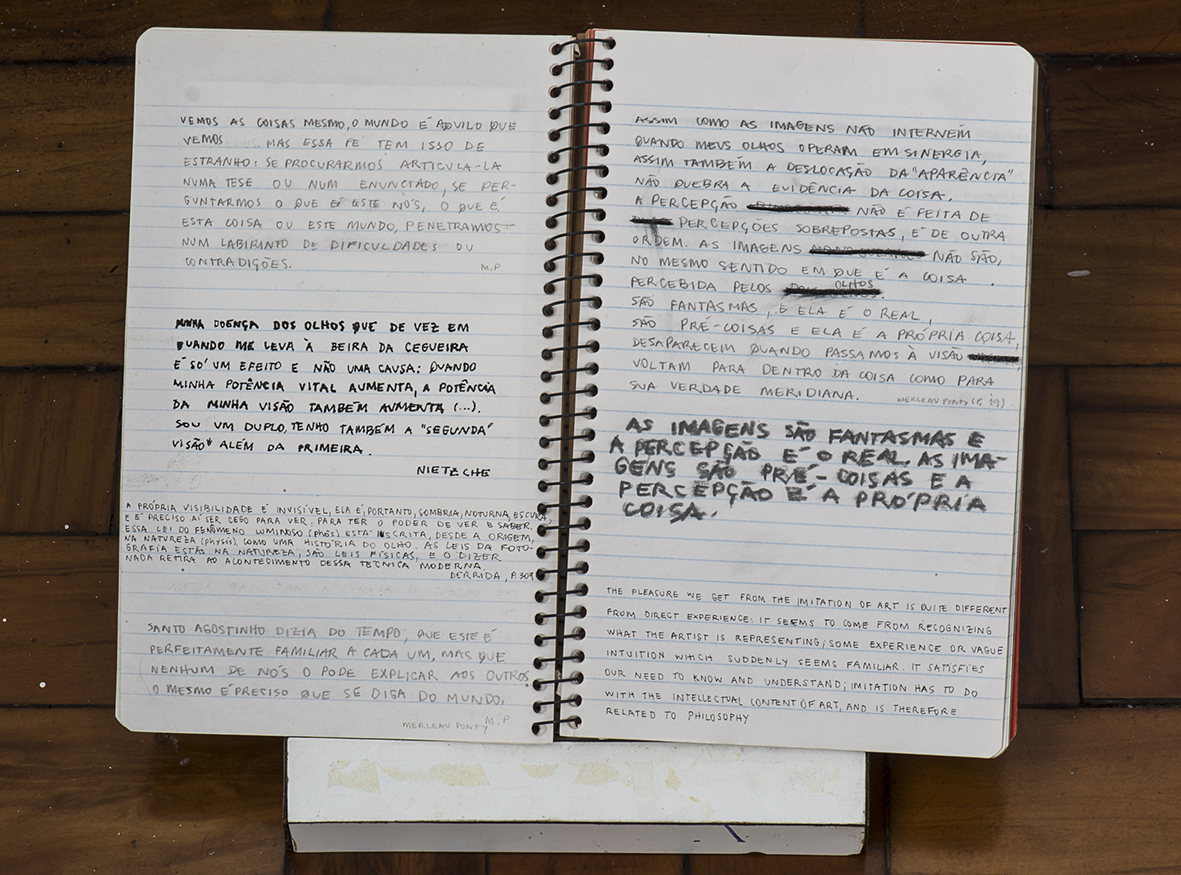 VEMOS AS COISAS MESMO, O MUNDO É AQUILO QUE
VEMOS MAS ESSA FÉ TEM ISSO DE
ESTRANHO: SE PROCURARMOS ARTICULA-LA
NUMA TESE OU NUM ENUNCIADO, SE PER-
GUNTARMOS O QUE É ESTE NÓS, O QUE É
ESTA COISA OU ESTE MUNDO, PENETRAMOS
NUM LABIRINTO DE DIFICULDADES OU
CONTRADIÇÕES.
M.P
MINHA DOENÇA DOS OLHOS QUE DE VEZ EM
QUANDO ME LEVA À BEIRA DA CEGUEIRA
É SÓ UM EFEITO E NÃO UMA CAUSA: QUANDO
MINHA POTÊNCIA VITAL AUMENTA, A POTÊNCIA
DA MINHA VISÃO TAMBÉM AUMENTA (...).
SOU UM DUPLO, TENHO TAMBÉM A "SEGUNDA
VISÃO" ALÉM DA PRIMEIRA.
NIETZCHE
A PRÓPRIA VISIBILIDADE É INVISÍVEL, ELA É, PORTANTO, SOMBRIA, NOTURNA, ESCURA,
E É PRECISO AÍ SER CEGO PARA VER. PARA TER O PODER DE VER E SABER.
ESSA LEI DO FENÔMENO LUMINOSO (PHÔS) ESTÁ INSCRITA, DESDE A ORIGEM,
NA NATUREZA (PHYSIS) COMO UMA HISTÓRIA DO OLHO. AS LEIS DA FOTO-
GRAFIA ESTÁS NA NATUREZA, SÃO LEIS FÍSICAS, E O DIZER
NADA RETIRA AO ACONTECIMENTO DESSA TÉCNICA MODERNA.
DERRIDA, P.309
SANTO AGOSTINHO DIZIA DO TEMPO, QUE ESTE É
PERFEITAMENTE FAMILIAR A CADA UM, MAS QUE
NENHUM DE NÓS O PODE EXPLICAR AOS OUTROS.
O MESMO É PRECISO QUE SE DIGA DO MUNDO.
M.P
MERLEAU PONTY
ASSIM COMO AS IMAGENS NÃO INTERNEIM
QUANDO MEUS OLHOS OPERAM EM SINERGIA,
ASSIM TAMBÉM A DESLOCAÇÃO DA "APARÊNCIA"
NÃO QUEBRA A EVIDÊNCIA DA COISA.
A PERCEPÇÃO NÃO É FEITA DE
PERCEPÇÕES SOBREPOSTAS, É DE OUTRA
ORDEM. AS IMAGENS NÃO SÃO,
NO MESMO SENTIDO EM QUE É A COISA
PERCEBIDA PELOS OLHOS.
SÃO FANTASMAS, E ELA É O REAL,
SÃO PRÉ-COISAS E ELA É A PRÓPRIA COISA,
DESAPARECEIM QUANDO PASSAMOS À VISÃO
VOLTAM PARA DENTRO DA COISA COMO PARA
SUA VERDADE MERIDIANA.
MERLEAU PONTY (P. 19)
AS IMAGENS SÃO FANTASMAS E
A PERCEPÇÃO É O REAL. AS IMA-
GENS SÃO PRÉ-COISAS E A
PERCEPÇÃO É A PRÓPRIA
COISA.
THE PLEASURE WE GET FROM THE IMITATION OF ART IS QUITE DIFFERENT
FROM DIRECT EXPERIENCE: IT SEEMS TO COME FROM RECOGNIZING
WHAT THE ARTIST IS REPRESENTING; SOME EXPERIENCE OR VAGUE
INTUITION WHICH SUDDENLY SEEMS FAMILIAR. IT SATISFIES
OUR NEED TO KNOW AND UNDERSTAND; IMITATION HAS TO DO
WITH THE INTELLECTUAL CONTENT OF ART, AND IS THEREFORE
RELATED TO PHILOSOPHY